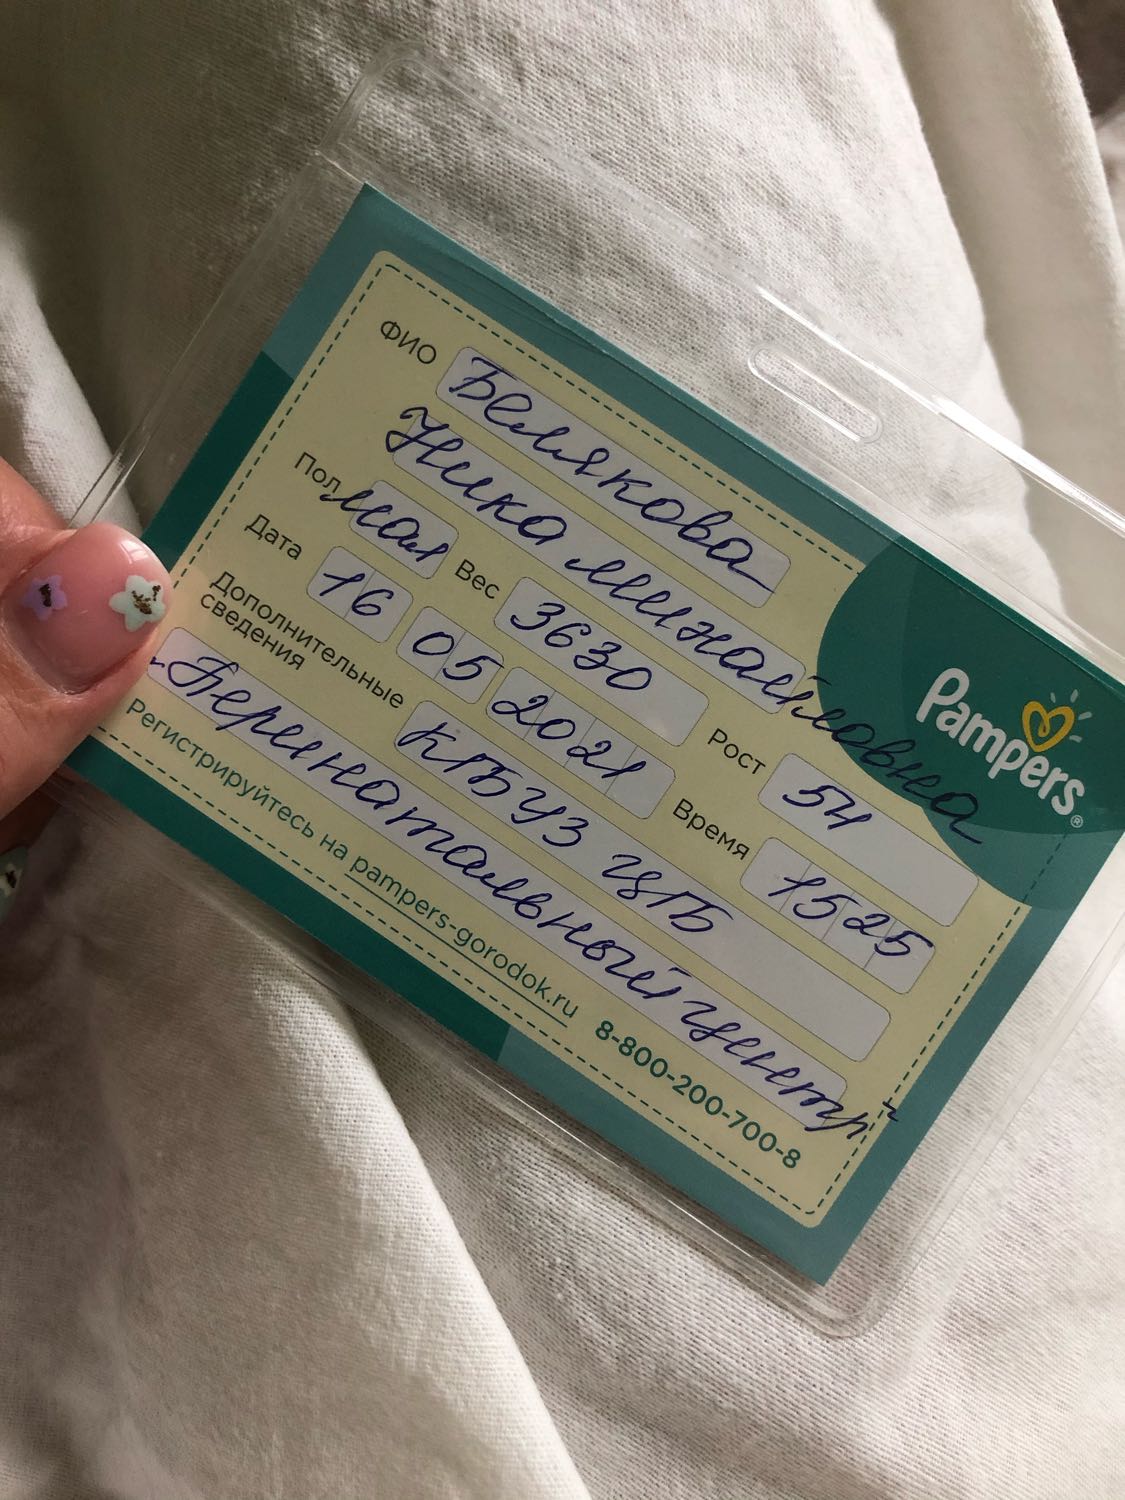 ФИО Белякова
Ника Михайловна
Пол мал Вес 3630 Рост 54
Дата 16 05 2021 Время 1525
Дополнительные
сведения
КГБУЗ ЦГБ
"Перинатальный центр"
Регистрируйтесь на pampers-gorodok.ru 8-800-200-700-8
Pampers®